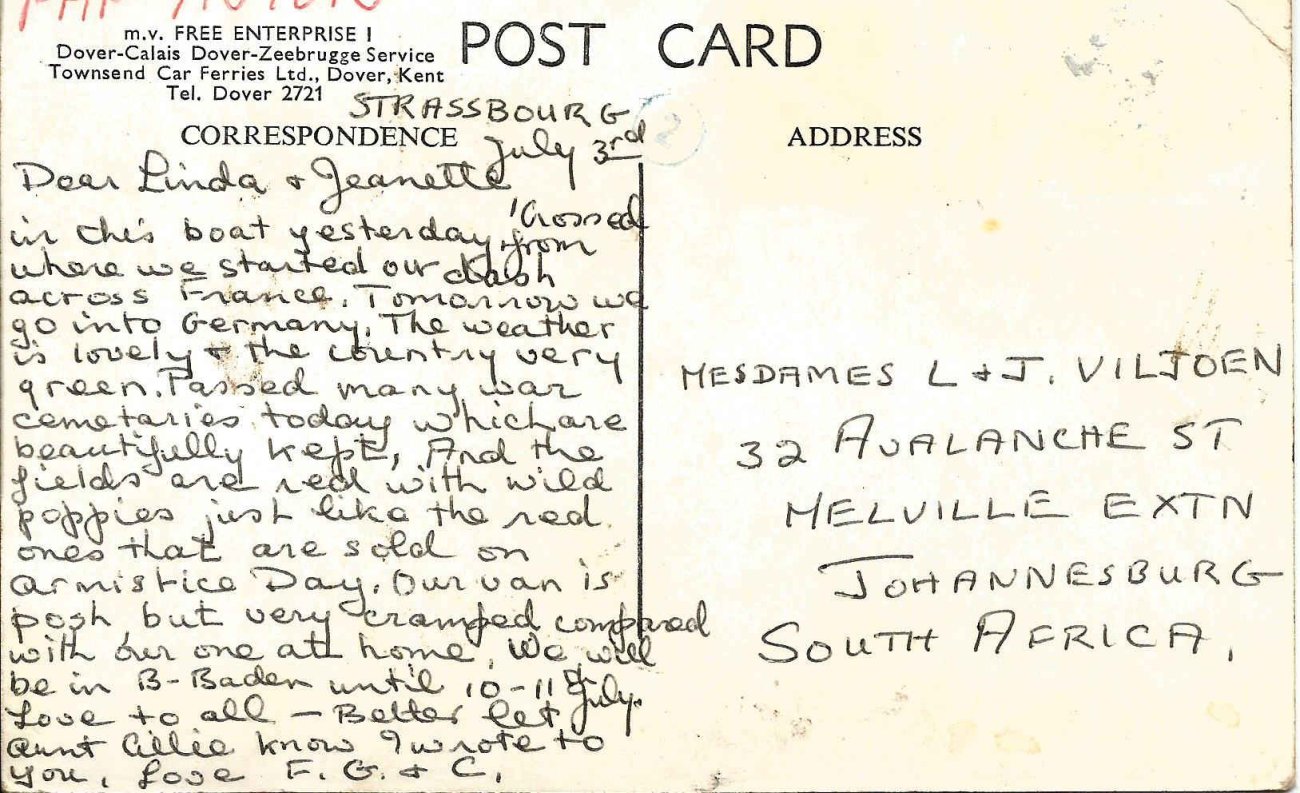 PAR AVION
m.v. FREE ENTERPRISE I
Dover-Calais Dover-Zeebrugge Service
Townsend Car Ferries Ltd., Dover, Kent
Tel. Dover 2721
POST CARD
STRASSBOURG
CORRESPONDENCE
July 3rd
2
Dear Linda & Jeanette
Crossed
in this boat yesterday, from
where we started our dash
across France. Tomorrow we
go into Germany. The weather
is lovely & the country very
green. Passed many war
cemetaries today which are
beautifully kept, And the
fields are red with wild
poppies just like the red
ones that are sold on
armistice Day. Our van is
posh but very cramped compared
with our one at home. We will
be in B-Baden until 10-11th July.
Love to all — Better let
aunt Cillie know I wrote to
you, Love F. G. & C.
ADDRESS
MESDAMES L & J. VILJOEN
32 AVALANCHE ST
MELVILLE EXTN
JOHANNESBURG
SOUTH AFRICA.